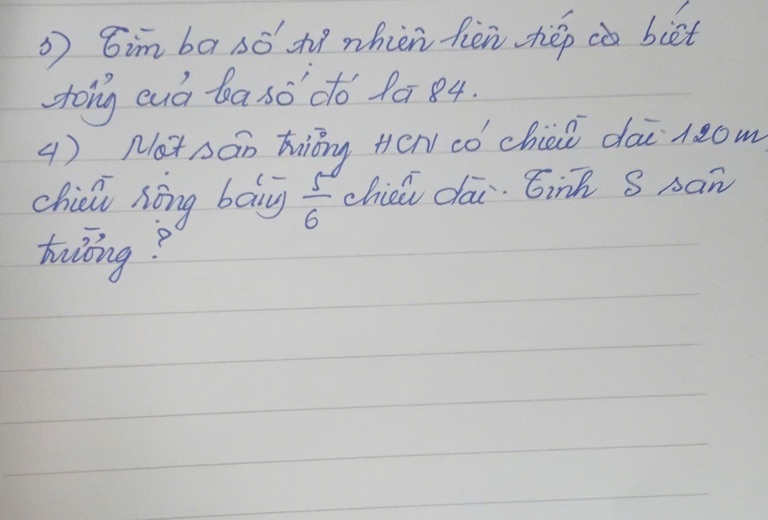 3) Tìm ba số tự nhiên liên tiếp biết
tổng của ba số đó là 84.
4) Một sân trường HCN có chiều dài 120m,
chiều rộng bằng 5/6 chiều dài. Tính S sân
trường?